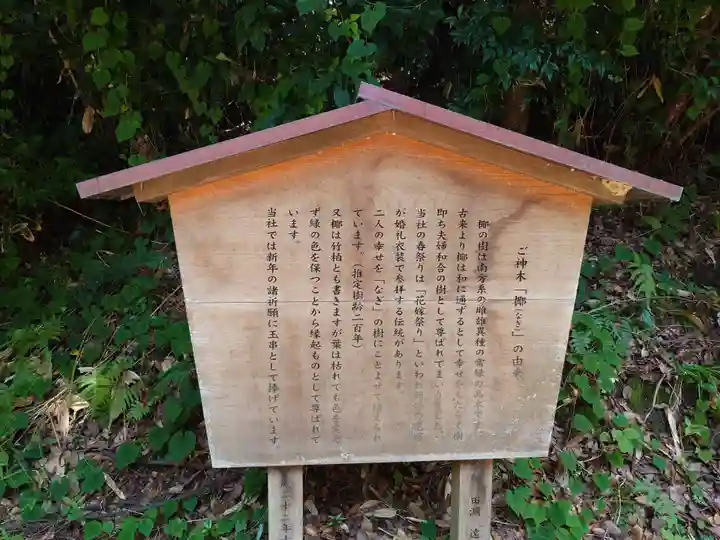 ご神木「梛(なぎ)」の由来
梛の樹は南方系の雌雄異種の常緑の高木です。
古来より梛は和に通ずるとして幸せ
即ち夫婦和合の樹として尊ばれてまいりました。
当社の春祭りは「花嫁祭り」といわれ
が婚礼衣装で参拝する伝統があります
二人の幸せを「なぎ」の樹にことよせて
ています。(推定樹齢二百年)
又梛は竹柏とも書きますが葉は枯れても色
ず緑の色を保つことから縁起ものとして尊ばれて
います。
当社では新年の諸祈願に玉串として捧げています。